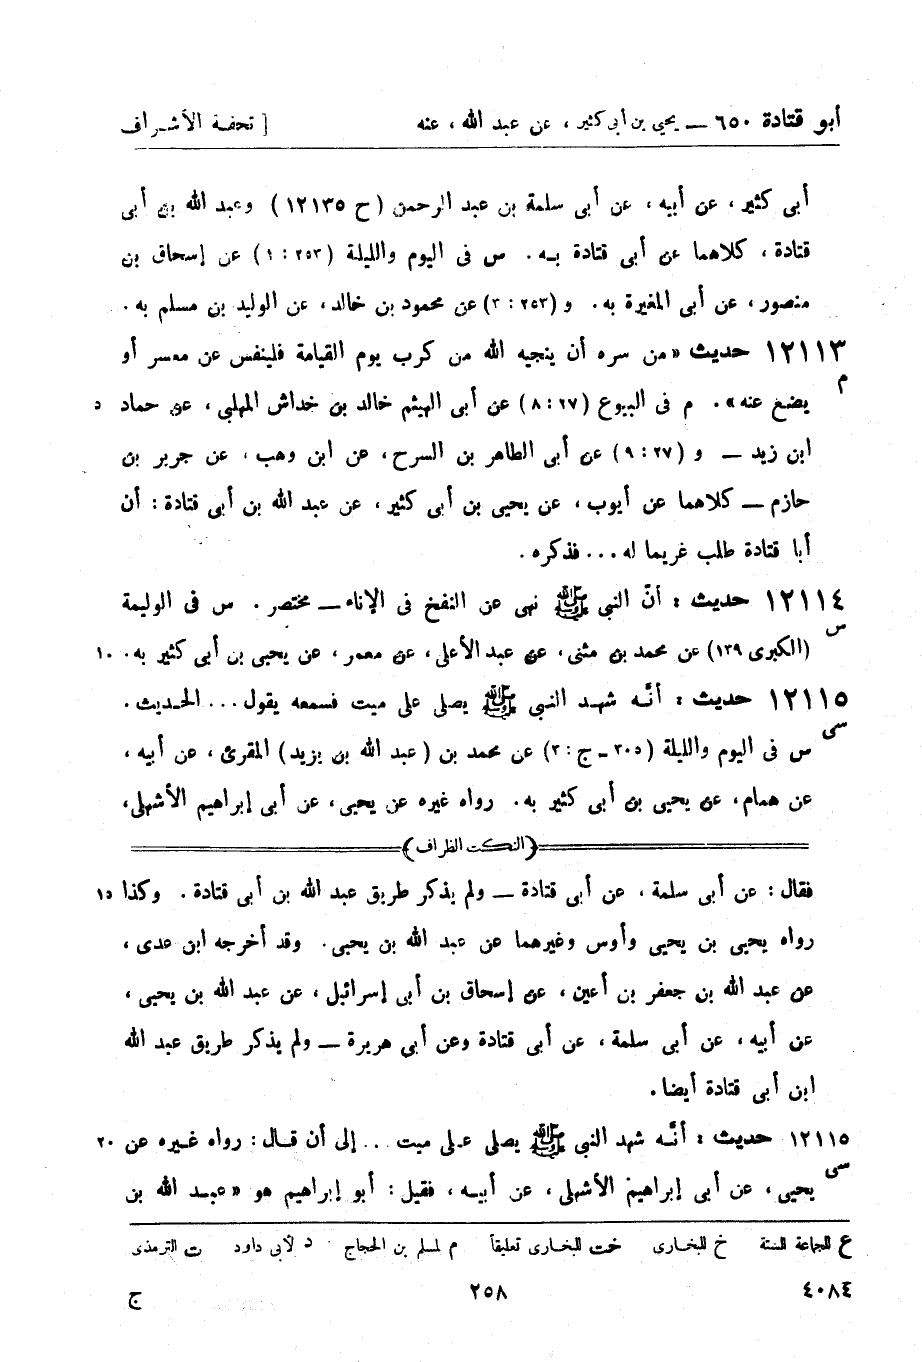 أبو قتادة ٦٥٠ — يحيى بن أبى كثير ، عن عبد الله ، عنه [ تحفة الأشراف
أبى كثير ، عن أبيه ، عن أبى سلمة بن عبد الرحمن ( ح ١٢١٣٥ ) وعبد الله بن أبى
قتادة ، كلاهما عن أبى قتادة به . س فى اليوم والليلة ( ٢٥٣ : ١ ) عن إسحاق بن
منصور ، عن أبى المغيرة به . و ( ٢٥٣ : ٢ ) عن محمود بن خالد ، عن الوليد بن مسلم به .
١٢١١٣ حديث « من سره أن ينجيه الله من كرب يوم القيامة فلينفس عن معسر أو
م
يضع عنه » . م فى البيوع ( ٢٧ : ٨ ) عن أبى الهيثم خالد بن خداش المهلبى ، عن حماد ٥
ابن زيد — و ( ٢٧ : ٩ ) عن أبى الطاهر بن السرح ، عن ابن وهب ، عن جرير بن
حازم — كلاهما عن أيوب ، عن يحيى بن أبى كثير ، عن عبد الله بن أبى قتادة : أن
أبا قتادة طلب غريما له ... فذكره .
١٢١١٤ حديث : أنّ النبى ﷺ نهى عن النفخ فى الإناء — مختصر . س فى الوليمة
س
( الكبرى ١٣٩ ) عن محمد بن مثنى ، عن عبد الأعلى ، عن معمر ، عن يحيى بن أبى كثير به . ١٠
١٢١١٥ حديث : أنّه شهد النبى ﷺ يصلى على ميت فسمعه يقول ... الحديث .
سى
س فى اليوم والليلة ( ٣٠٥ - ج : ٢ ) عن محمد بن ( عبد الله بن يزيد ) المقرئ ، عن أبيه ،
عن همام ، عن يحيى بن أبى كثير به . رواه غيره عن يحيى ، عن أبى إبراهيم الأشهلى ،
( النكت الظراف )
فقال : عن أبى سلمة ، عن أبى قتادة — ولم يذكر طريق عبد الله بن أبى قتادة . وكذا ١٥
رواه يحيى بن يحيى وأوس وغيرهما عن عبد الله بن يحيى . وقد أخرجه ابن عدى ،
عن عبد الله بن جعفر بن أعين ، عن إسحاق بن أبى إسرائيل ، عن عبد الله بن يحيى ،
عن أبيه ، عن أبى سلمة ، عن أبى قتادة وعن أبى هريرة — ولم يذكر طريق عبد الله
ابن أبى قتادة أيضا .
١٢١١٥ حديث : أنّه شهد النبى ﷺ يصلى على ميت .. إلى أن قال : رواه غيره عن ٢٠
سى
يحيى ، عن أبى إبراهيم الأشهلى ، عن أبيه ، فقيل : أبو إبراهيم هو « عبد الله بن
ع للجماعة الستة خ للبخارى خت للبخارى تعليقاً م لمسلم بن الحجاج د لأبى داود ت الترمذى
٤٠٨٤ ٢٥٨ ج